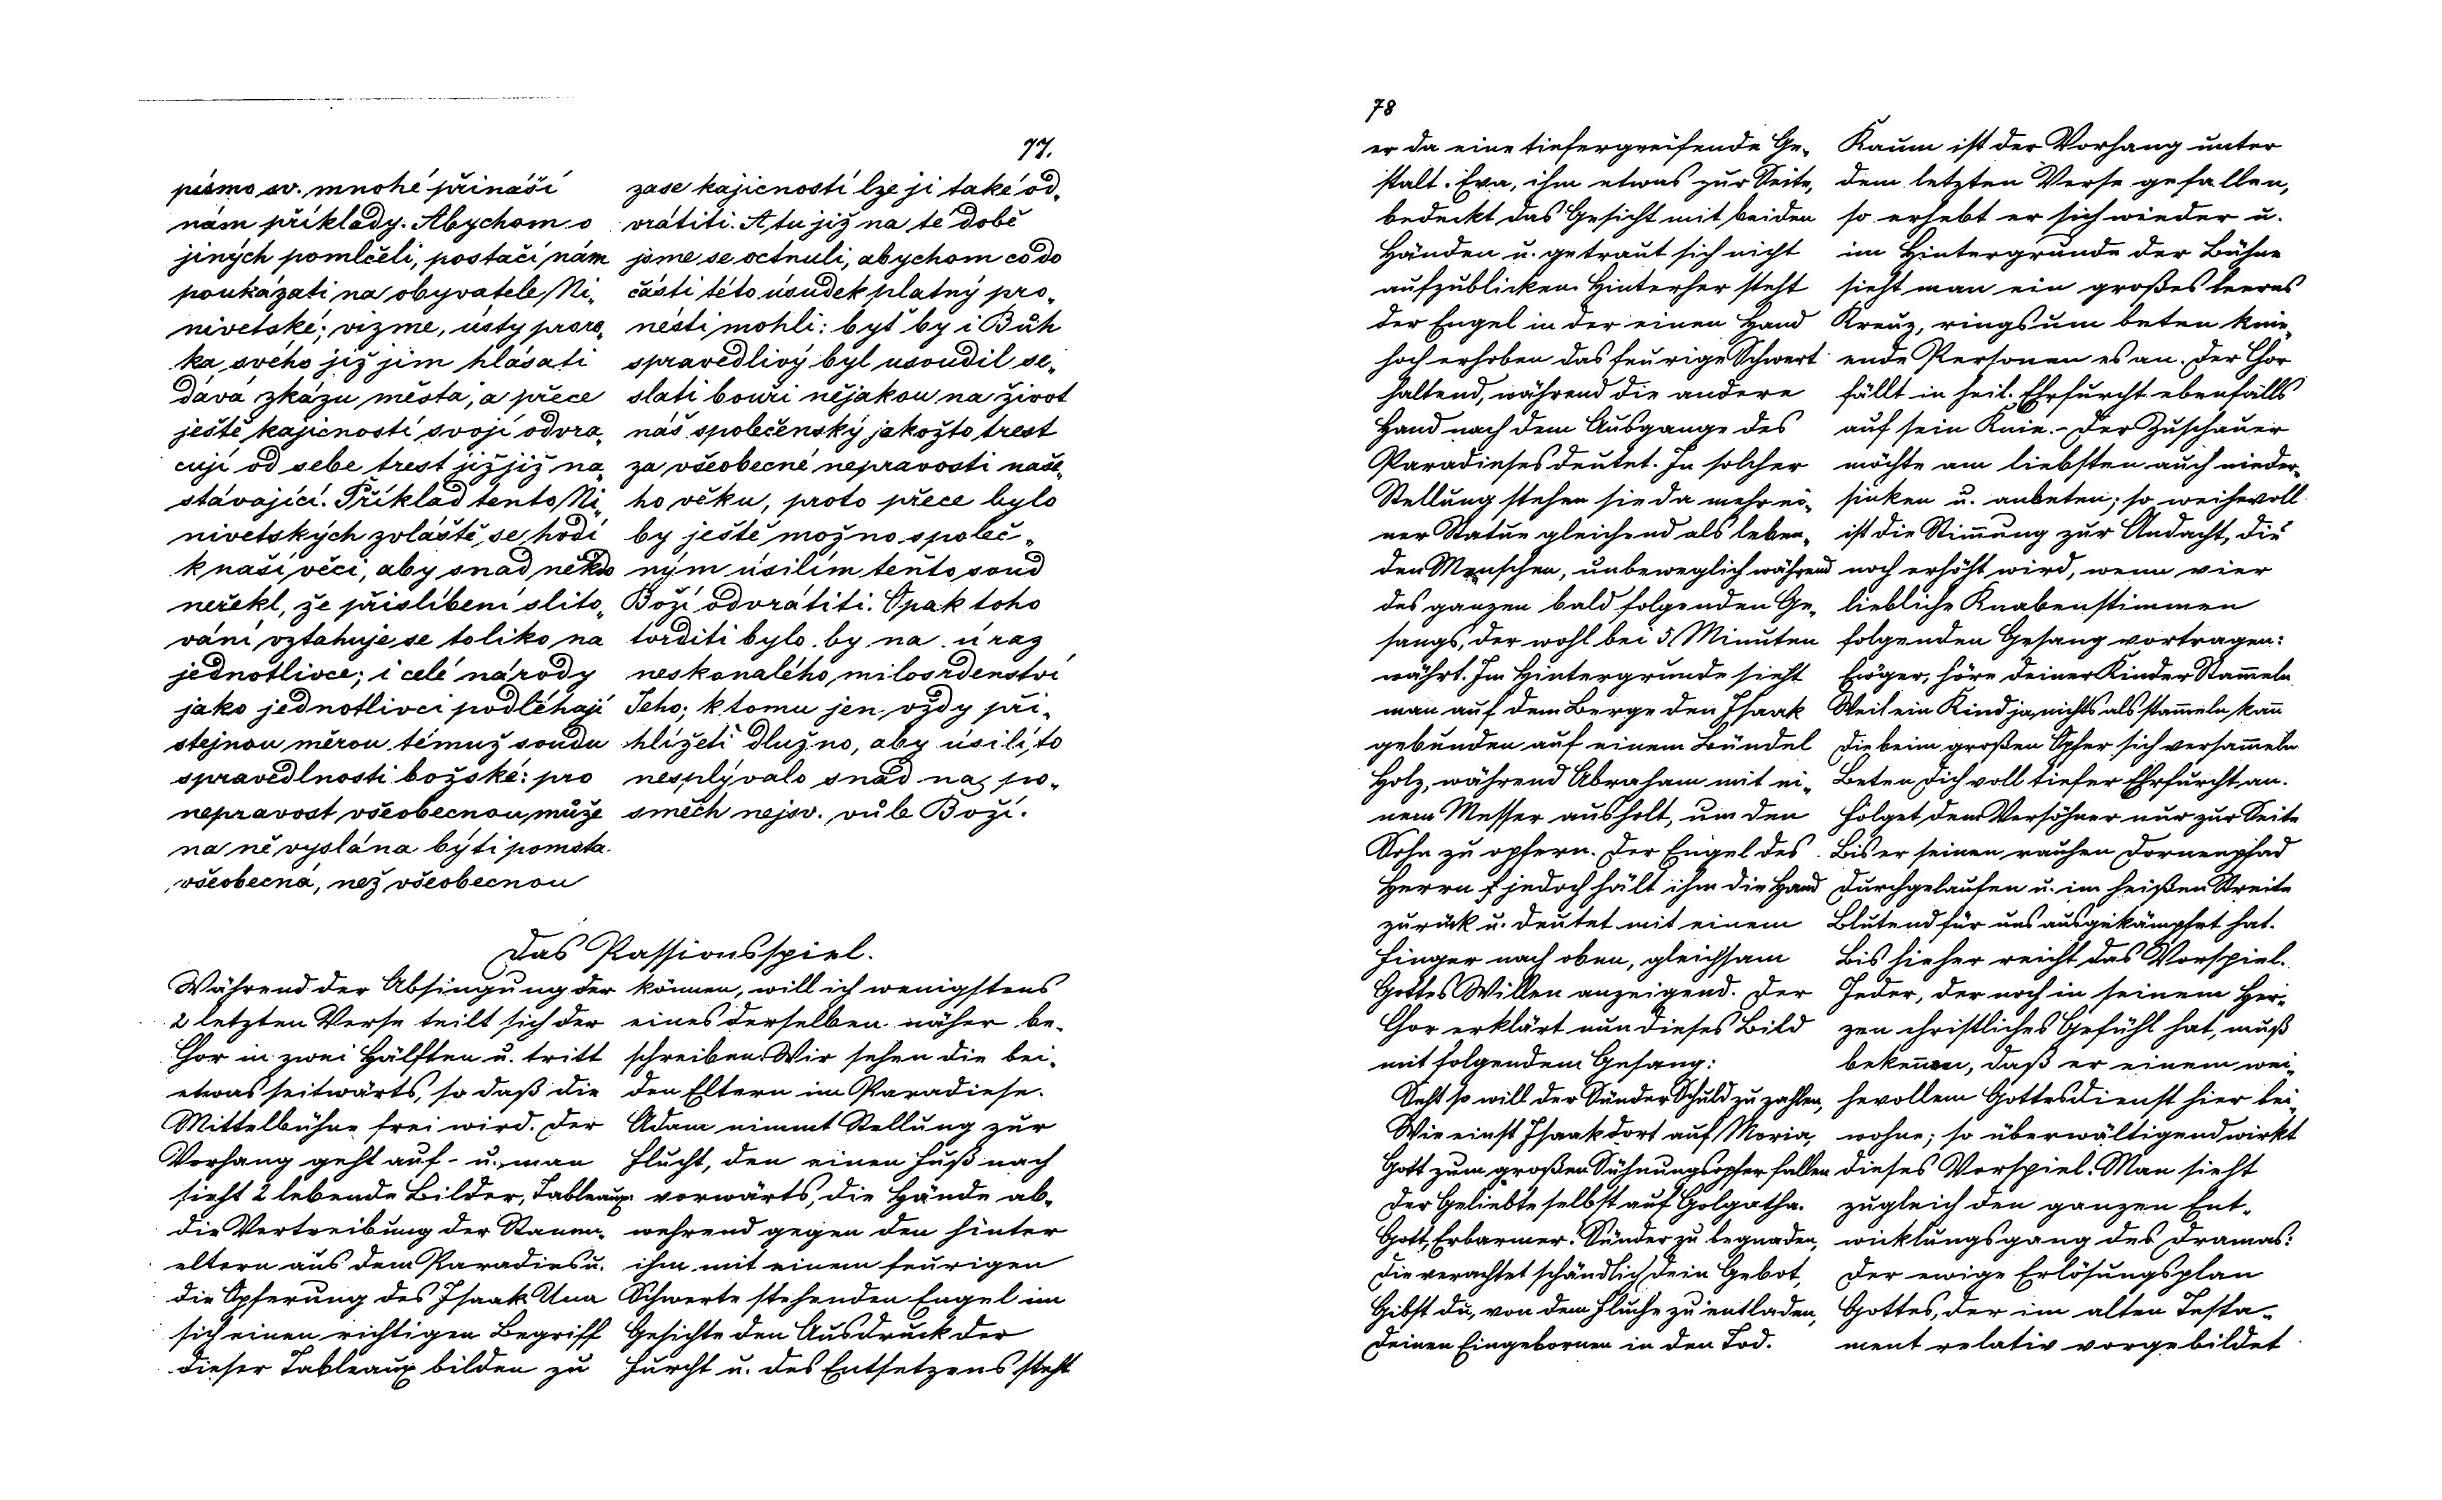 77.
písmo sv. mnohé přináší
nám příklady. Abychom o
jiných pomlčeli, postačí nám
poukázati na obyvatele Ni-
nivetské; vizme, ústy proro-
ka svého již jim hlásati
dává zkázu města, a přece
ještě kajícností svojí odvra-
cují od sebe trest jižjiž na-
stávající. Příklad tento Ni-
nivetských zvláště se hodí
k naší věci, aby snad někdo
neřekl, že přislíbení slito-
vání vztahuje se toliko na
jednotlivce; i celé národy
jako jednotlivci podléhají
stejnou měrou témuž soudu
spravedlnosti božské: pro
nepravost všeobecnou může
na ně vyslána býti pomsta
všeobecná, než všeobecnou
zase kajícností lze ji také od-
vrátiti. A tu již na té době
jsme se octnuli, abychom co do
části této úsudek platný pro-
nésti mohli: byť by i Bůh
spravedlivý byl usoudil se-
slati bouři nějakou na život
náš společenský jakožto trest
za všeobecné nepravosti naše-
ho věku, proto přece bylo
by ještě možno společ-
ným úsilím tento soud
Boží odvrátiti. Opak toho
tvrditi bylo by na úraz
neskonalého milosrdenství
Jeho; k tomu jen vždy při-
hlížeti dlužno, aby úsilí to
nesplývalo snad na po-
směch nejsv. vůle Boží.
Das Passionsspiel.
Während der Absingung der
2 letzten Verse teilt sich der
Chor in zwei Hälften u. tritt
etwas seitwärts, so daß die
Mittelbühne frei wird. Der
Vorhang geht auf - u. man
sieht 2 lebende Bilder, Tableaux
die Vertreibung der Stamm-
eltern aus dem Paradies u.
die Opferung des Isaak. Um
sich einen richtigen Begriff
dieser Tableaux bilden zu
können, will ich wenigstens
eines derselben näher be-
schreiben. Wir sehen die bei-
den Eltern im Paradiese.
Adam nimmt Stellung zur
Flucht, den einen Fuß nach
vorwärts, die Hände ab-
wehrend gegen den hinter
ihm mit einem feurigen
Schwerte stehenden Engel im
Gesichte den Ausdruck der
Furcht u. des Entsetzens steht
78
er da eine tiefergreifende Ge-
stalt. Eva, ihm etwas zur Seite,
bedeckt das Gesicht mit beiden
Händen u. getraut sich nicht
aufzublicken. Hinterher steht
der Engel in der einen Hand
hoch erhoben das feurige Schwert
haltend, während die andere
Hand nach dem Ausgange des
Paradieses deutet. In solcher
Stellung stehen sie da mehr ei-
ner Statue gleichend als leben-
den Menschen, unbeweglich während
des ganzen bald folgenden Ge-
sangs, der wohl bei 5 Minuten
währt. Im Hintergrunde sieht
man auf dem Berge den Isaak
gebunden auf einem Bündel
Holz, während Abraham mit ei-
nem Messer ausholt, um den
Sohn zu opfern. Der Engel des
Herrn jedoch hält ihm die Hand
zurück u. deutet mit einem
Finger nach oben, gleichsam
Gottes Willen anzeigend. Der
Chor erklärt nun dieses Bild
mit folgendem Gesang:
Seht so will der Sünder Schuld zu zahlen,
Wie einst Isaak dort auf Moria,
Gott zum großen Sühnungsopfer fallen
Der Geliebte selbst auf Golgatha.
Gott, Erbarmer. Sünder zu begnaden,
Die verachtet schändlich dein Gebot,
Gibst du, von dem Fluche zu entladen,
Deinen Eingebornen in den Tod.
Kaum ist der Vorhang unter
dem letzten Verse gefallen,
so erhebt er sich wieder u.
im Hintergrunde der Bühne
sieht man ein großes leeres
Kreuz, ringsum beten knie-
ende Personen es an. Der Chor
fällt in heil. Ehrfurcht ebenfalls
auf sein Knie. - Der Zuschauer
möchte am liebsten auch nieder-
sinken u. anbeten; so weihevoll
ist die Stim̄ung zur Andacht, die
noch erhöht wird, wenn vier
liebliche Knabenstimmen
folgenden Gesang vortragen:
Ewiger, höre deiner Kinder Stam̄eln
Weil ein Kind ja nichts als stam̄eln kan̄
Die beim großen Opfer sich versam̄eln
Beten dich voll tiefer Ehrfurcht an.
Folget dem Versöhner nur zur Seite
Bis er seinen rauhen Dornenpfad
Durchgelaufen u. im heißen Streite
Blutend für uns ausgekämpfet hat.
Bis hieher reicht das Vorspiel.
Jeder, der noch in seinem Her-
zen christliches Gefühl hat, muß
beken̄en, daß er einem wei-
hevollem Gottesdienst hier bei-
wohne; so überwältigend wirkt
dieses Vorspiel. Man sieht
zugleich den ganzen Ent-
wicklungsgang des Dramas:
Der ewige Erlösungsplan
Gottes, der im alten Testa-
ment relativ vorgebildet